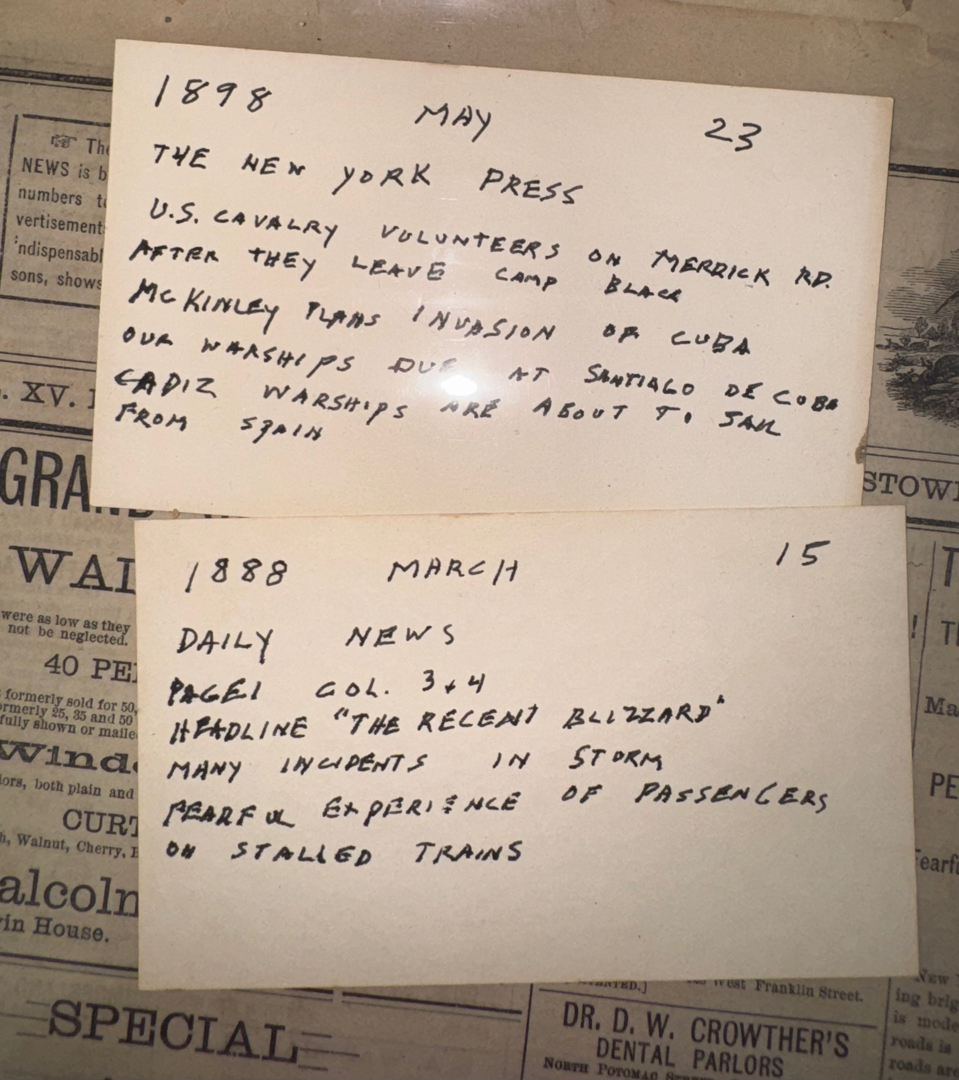 1898 MAY 23
THE NEW YORK PRESS
U.S. CAVALRY VOLUNTEERS ON MERRICK RD.
AFTER THEY LEAVE CAMP BLACK
MCKINLEY PLANS INVASION OF CUBA
OUR WARSHIPS DUE AT SANTIAGO DE CUBA
CADIZ WARSHIPS ARE ABOUT TO SAIL
FROM SPAIN
1888 MARCH 15
DAILY NEWS
PAGE 1 COL. 3 + 4
HEADLINE "THE RECENT BLIZZARD"
MANY INCIDENTS IN STORM
FEARFUL EXPERIENCE OF PASSENGERS
ON STALLED TRAINS
☞ The
NEWS is b
numbers t
vertisement
indispensabl
sons, shows
. XV.
GRA
WAL
were as low as they
not be neglected.
40 PE
formerly sold for 50,
ormerly 25, 35 and 50
fully shown or maile
Wind
iors, both plain and
CURT
h, Walnut, Cherry,
alcoln
vin House.
SPECIAL
STOW
Ma
PE
Fearf
West Franklin Street.
DR. D. W. CROWTHER'S
DENTAL PARLORS
NORTH POTOMAC
New
ing brig
is mode
roads is
roads are